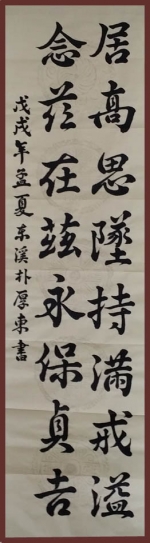 居高思墜持滿戒溢
念茲在茲永保貞吉
戊戌年孟夏東溪朴厚東書